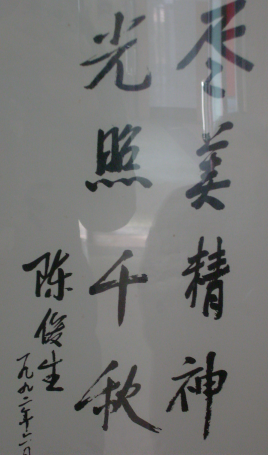 尽美精神
光照千秋
陈俊生
一九九二年六月